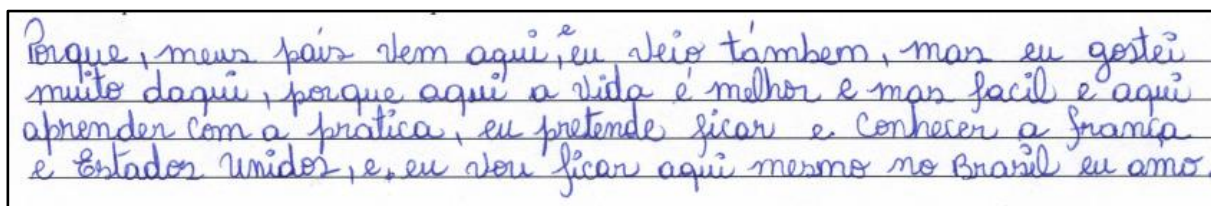 Porque, meus país vem aqui, e eu veio támbem, mas eu gostei
muito daqui, porque aqui a vida é melhor e mas facil e aqui
aprender com a pratica, eu pretende ficar e conhecer a frança
e Estados Unidos, e, eu vou ficar aqui mesmo no Brasil eu amo.